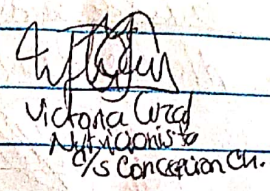 Victoria Cural
Nutricionista
c/s Concepcion Ch.